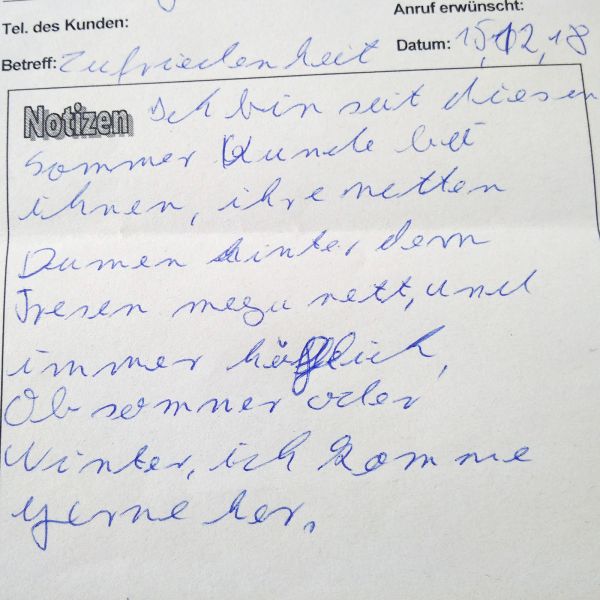 Anruf erwünscht:
Tel. des Kunden:
Datum: 15,12,18
Betreff: Zufriedenheit
Notizen Ich bin seit diesen
sommer Kunde bei
ihnen, ihre netten
Damen hinter dem
Tresen mega nett, und
immer höflich,
Ob sommer oder
Winter, ich komme
gerne her.